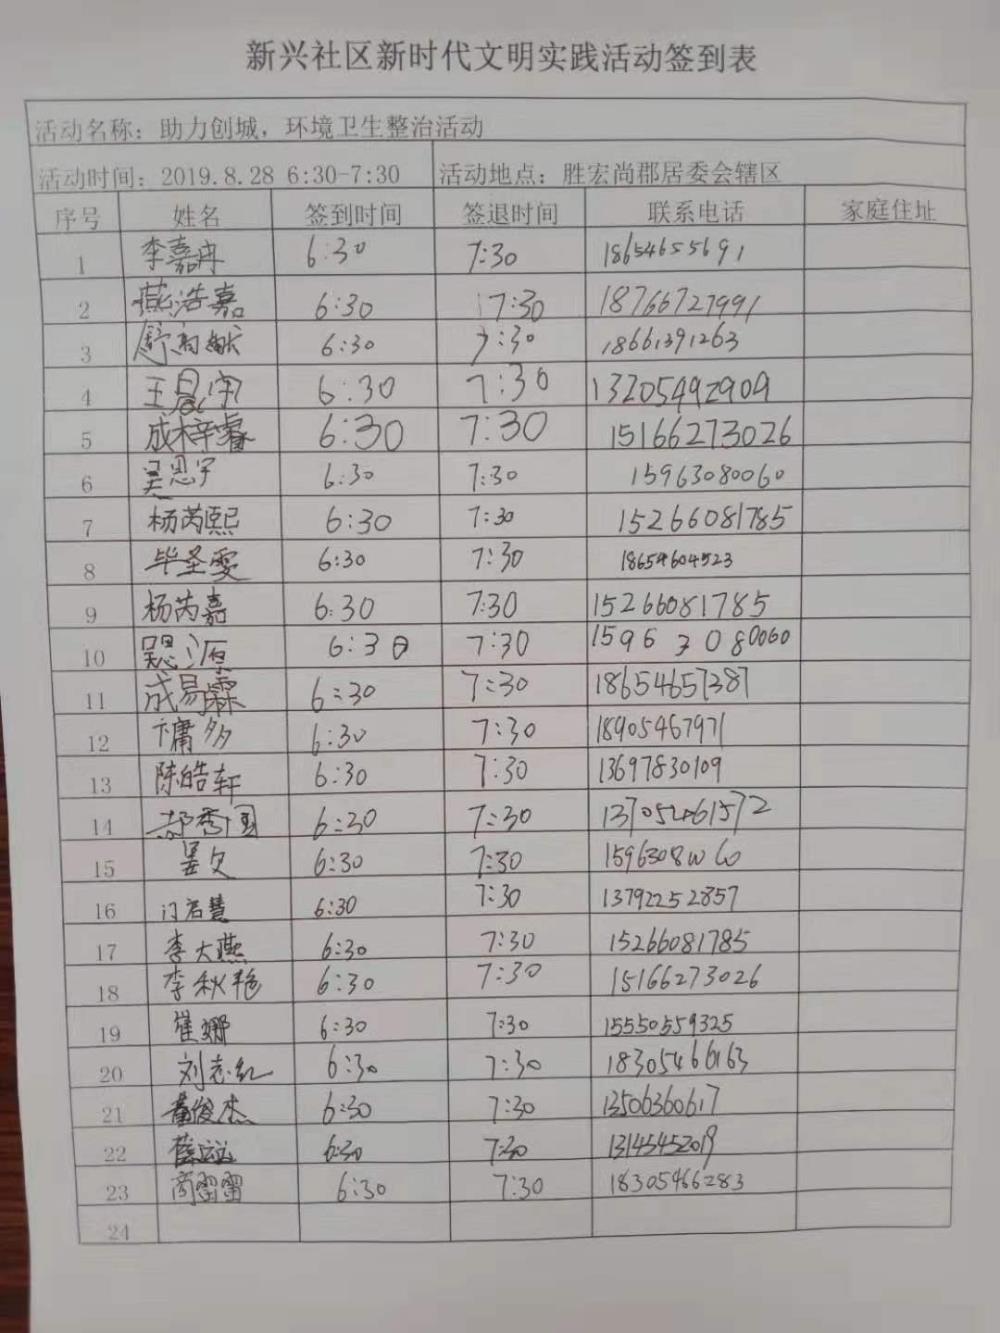 新兴社区新时代文明实践活动签到表
活动名称：助力创城，环境卫生整治活动
活动时间：2019.8.28 6:30-7:30 活动地点：胜宏尚郡居委会辖区
序号 姓名 签到时间 签退时间 联系电话 家庭住址
1 李嘉冉 6:30 7:30 18654655691
2 燕浩嘉 6:30 7:30 18766727991
3 舒高献 6:30 7:30 18661391263
4 王晨宇 6:30 7:30 13205492909
5 成梓睿 6:30 7:30 15166273026
6 吴思宇 6:30 7:30 15963080060
7 杨芮熙 6:30 7:30 15266081785
8 毕圣雯 6:30 7:30 18654604523
9 杨芮嘉 6:30 7:30 15266081785
10 6:30 7:30 15963080060
11 成易霖 6:30 7:30 18654657387
12 卞庸多 6:30 7:30 18905467971
13 陈皓轩 6:30 7:30 13697830109
14 郝秀国 6:30 7:30 13705461572
15 6:30 7:30
16 门若慧 6:30 7:30 13792252857
17 李大燕 6:30 7:30 15266081785
18 李秋艳 6:30 7:30 15166273026
19 崔娜 6:30 7:30 15550559325
20 刘志红 6:30 7:30 18305466163
21 俊杰 6:30 7:30 13506360617
22 6:30 7:30 13145452019
23 商雷雷 6:30 7:30 18305466283
24